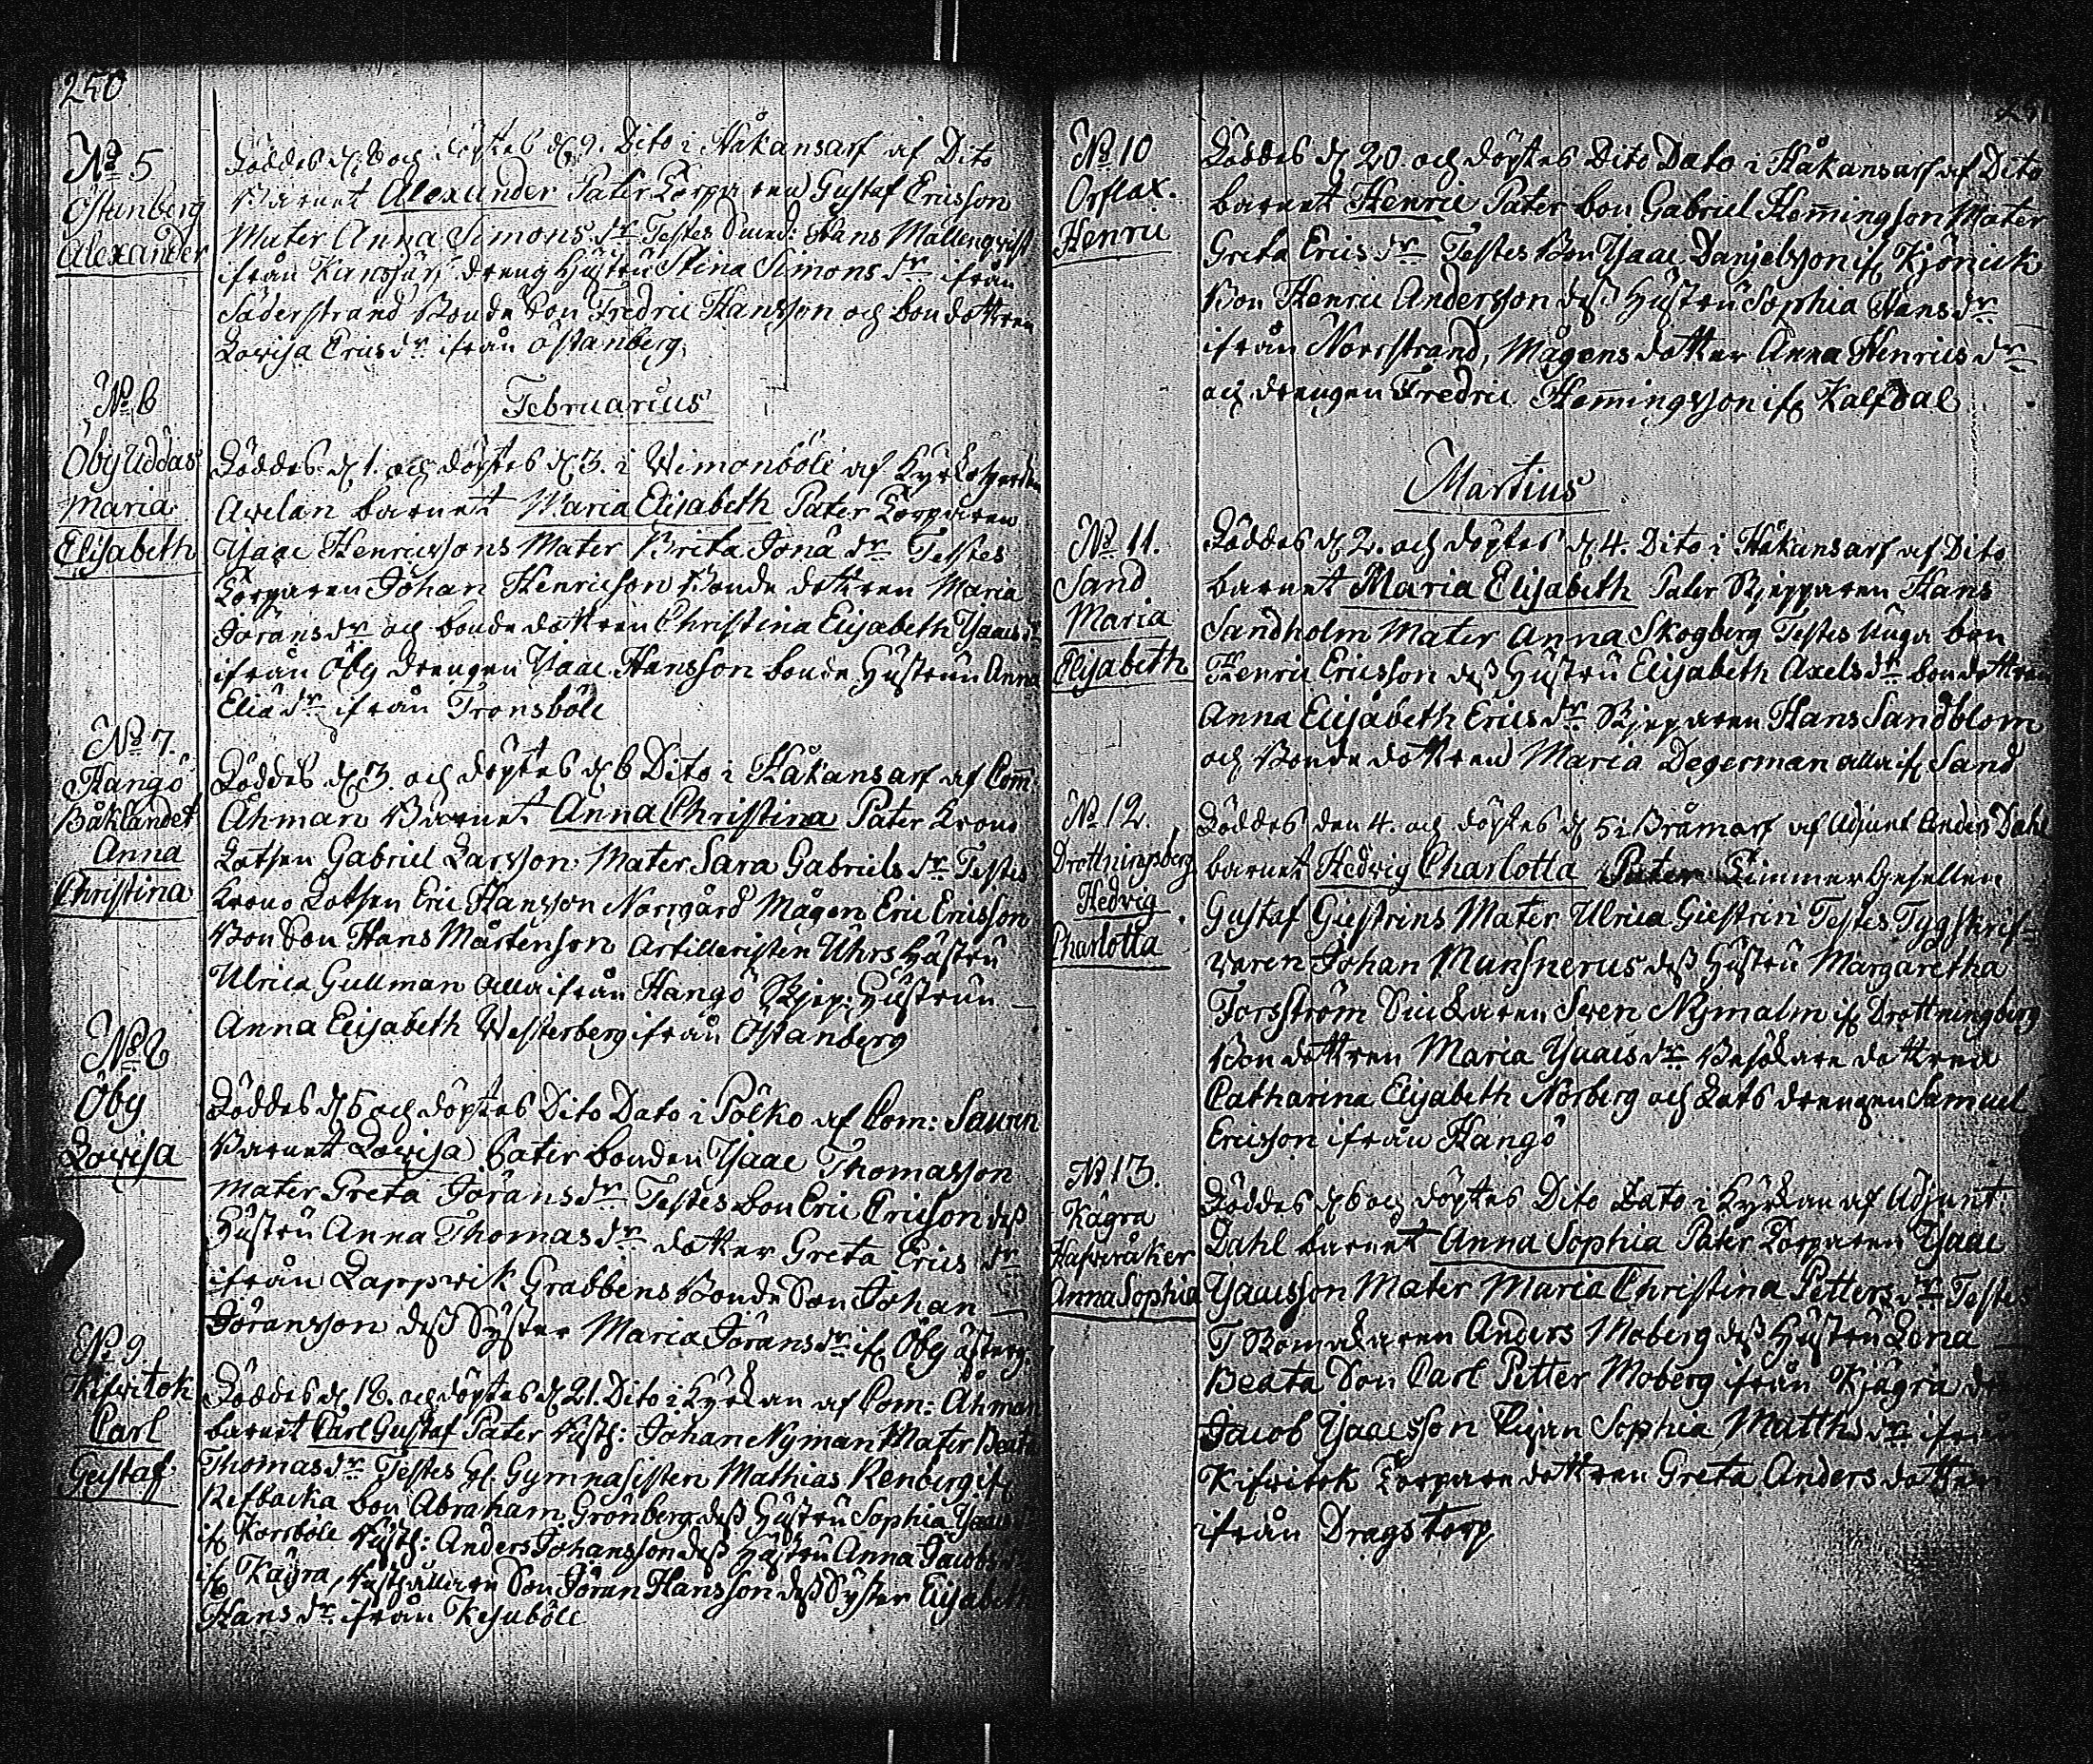 250
No 5
Östanberg
Alexander
Föddes d. 8 och döptes d. 9. Dito i Håkansarf af Dito
Barnet Alexander Pater Torparen Gustaf Ericsson
Mater Anna Simons dr Testes Hans Mallenqvist
ifrån dreng Hustru Stina Simons dr ifrån
Söderstrand Bonde Son Fredric Hansson och bondottren
Lovisa Erics dr ifrån Östanberg.
No 6
Februarius
Öby Uddas
Maria
Elisabeth
Föddes d. 1. och döptes d. 3. i Wimonböle af Kyrkoherden
Avelan barnet Maria Elisabeth Pater Torparen
Ysaac Henricssons Mater Brita Jona dr Testes
Torparen Johan Henricson Bonde dottren Maria
Jörans dr och bonde dottren Christina Elisabeth Ysaacs dr
ifrån Öby drengen Ysaac Hansson bonde Hustrun Anna
Elia dr ifrån Tronsböle
No 7.
Hangö
Båklandet
Anna
Christina
Föddes d. 3. och döptes d. 6 Dito i Håkansarf af Com:
Åhman Barnet Anna Christina Pater Krono
Lotsen Gabriel Larsson. Mater Sara Gabriels dr Testes
Krono Lotsen Eric Hansson Norrgård Mågen Eric Ericsson
Bon Son Hans Mårtenson Artilleristen Uhrs Hustru
Ulrica Gullman alla ifrån Hangö Skjep: Hustrun
Anna Elisabeth Westerberg ifrån Östanberg
No 8
Öby
Lovisa
Föddes d. 5 och döptes Dito Dato i Pölko af Com: Sauren
Barnet Lovisa Pater bonden Ysaac Thomasson
Mater Greta Jörans dr Testes bon Eric Ericson dess
Hustru Anna Thomas dr dotter Greta Erics dr
ifrån Lappwik Grabbens Bonde Son Johan
Jöransson dess Syster Maria Jörans dr if. Öby
No 9
Kifvitok
Carl
Gustaf
Föddes d. 18. och döptes d. 21. Dito i Kyrkan af Com: Åhman
barnet Carl Gustaf Pater Rusth: Johan Nyman Mater Beata
Thomas dr Testes Gymnasisten Mathias Renberg if.
Refbacka bon Abraham Grönberg dess Hustru Sophia Ysaacs
if. Korsböle Rusth: Anders Johansson dess Hustru Anna Jacobs
if. Kägra, Rusthållaren Son Jöran Hansson dess Syster Elisabeth
Hans dr ifrån Kesuböle
251
No 10
Orflax.
Henric
Föddes d. 20. och döptes Dito Dato i Håkansarf af Dito
barnet Henric Pater bon Gabriel Hemingson Mater
Greta Erics dr Testes Bon Ysaac Danjelsson if. Kjönick
Bon Henric Andersson dess Hustru Sophia Hans dr
ifrån Norrstrand, Mågens dotter Anna Henrics dr
och drengen Fredric Hemingsson if. Kalfdal
Martius
No 11.
Sand
Maria
Elisabeth
Föddes d. 2. och döptes d. 4. Dito i Håkansarf af Dito
barnet Maria Elisabeth Pater Skjepparen Hans
Sandholm Mater Anna Skogberg Testes Unga bon
Henric Ericsson dess Hustru Elisabeth Axels dr bondottren
Anna Elisabeth Erics dr Skjeparen Hans Sandblom
och Bonde dottren Maria Degerman alla if. Sand
No 12.
Drottningsberg
Hedvig
Charlotta
Föddes den 4. och döptes d. 5 i Bråmarf af Adjunt Anders Dahl
barnet Hedvig Charlotta Pater Timmer Gesellen
Gustaf Giestrins Mater Ulrica Giestrin Testes Tygskrif-
varen Johan Munsnerus dess Hustru Margaretha
Forsström Snickaren Sven Nymalm if. Drottningberg
Bondottren Maria Ysaacs dr Besökare dottren
Catharina Elisabeth Norberg och Lots drengen Samuel
Ericsson ifrån Hangö
No 13.
Kägra
Hafveråker
Anna Sophia
Föddes d. 6 och döptes Dito Dato i Kyrkan af Adjunt:
Dahl barnet Anna Sophia Pater Torparen Ysaac
Ysaacsson Mater Maria Christina Petters dr Testes
Anders Moberg dess Hustru Lena
Beata Son Carl Petter Moberg ifrån Kjägra
Jacob Ysaacsson Pigan Sophia Matths dr ifrån
Kifvitok Torpare dottren Greta Anders dotter
ifrån Dragstorp